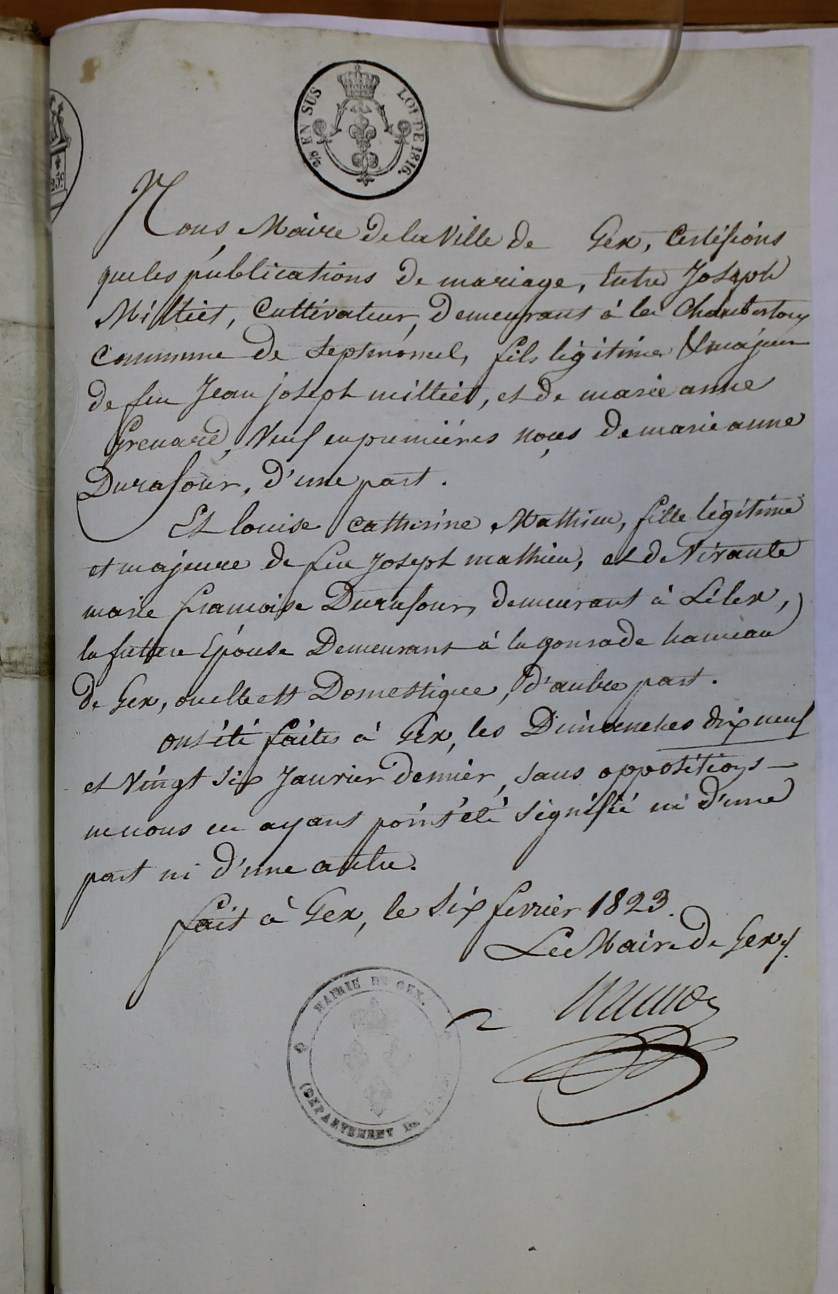 2/10 EN SUS LOI DE 1816.
Nous Maire de la Ville de Gex, Certifions
que les publications de mariage, Entre Joseph
Milliet, Cultivateur, Demeurant à la
Commune de Septmoncel, fils légitime & majeur
de feu Jean joseph milliet, et de marie anne
Grenard, Veuf en premières noces de marie anne
Durafour, d'une part.
Et louise Catherine Mathieu, fille légitime
et majeure de feu Joseph mathieu, et de Vivante
marie francoise Durafour, demeurant à Lélex,
la future Epouse Demeurant à la gonrade hameau
de Gex, ou elle est Domestique, d'autre part.
ont été faites à Gex, les Dimanches dix neuf
et Vingt six Janvier dernier, sans oppositions
ne nous en ayant point été signifié ni d'une
part ni d'une autre.
fait à Gex, le six fevrier 1823.
Le Maire de Gex,
MAIRIE DE GEX.
(DEPARTEMENT DE L'AIN)